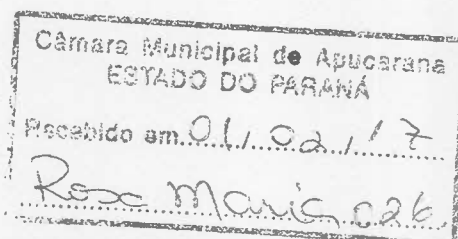 Câmara Municipal de Apucarana
ESTADO DO PARANÁ
Recebido em 01/02/17
Rose Maria 026